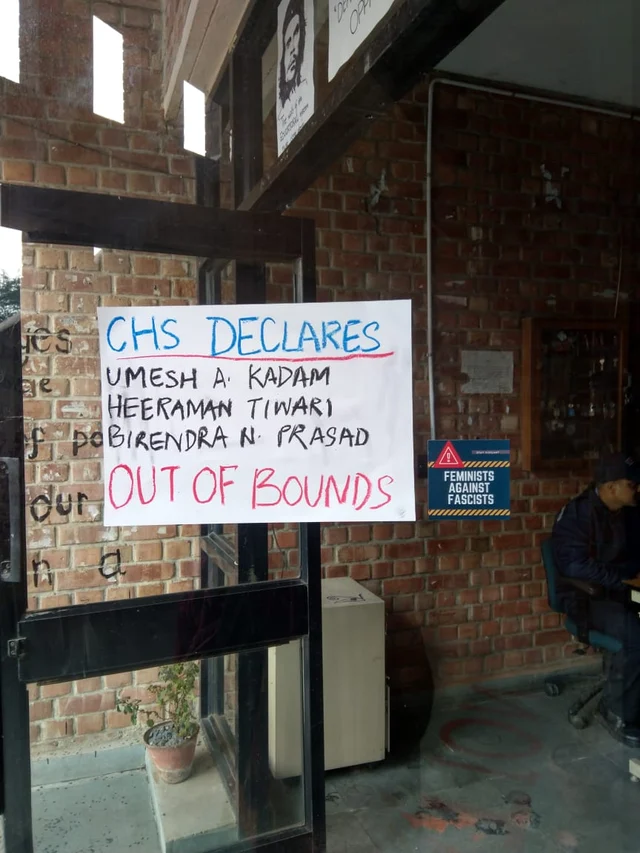 CHS DECLARES
UMESH A. KADAM
HEERAMAN TIWARI
BIRENDRA N. PRASAD
OUT OF BOUNDS
FEMINISTS
AGAINST
FASCISTS
of po
our
n a